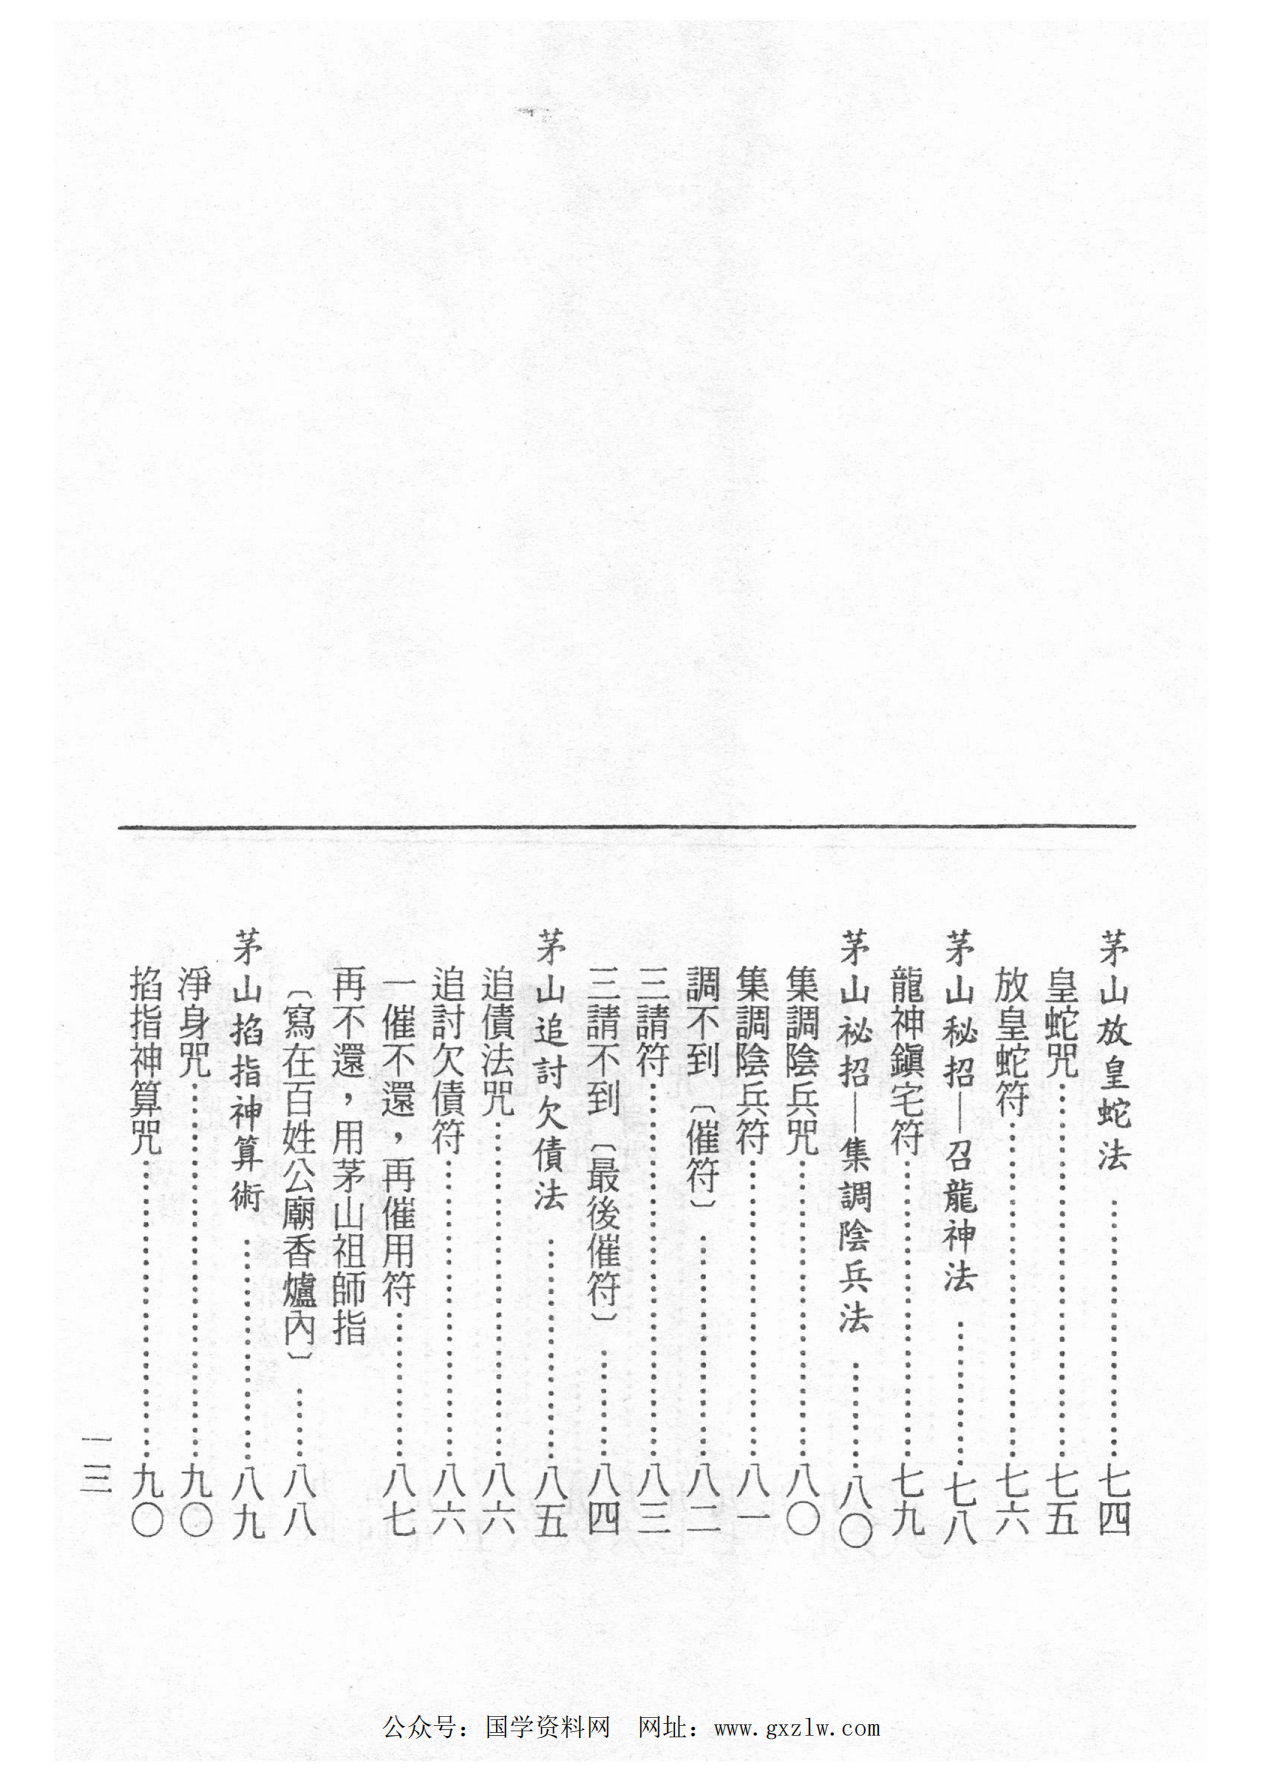 茅山放皇蛇法……………………七四
皇蛇咒……………………七五
放皇蛇符……………………七六
茅山秘招—召龍神法……………………七八
龍神鎮宅符……………………七九
茅山祕招—集調陰兵法……………………八〇
集調陰兵咒……………………八〇
集調陰兵符……………………八一
調不到〔催符〕……………………八二
三請符……………………八三
三請不到〔最後催符〕……………………八四
茅山追討欠債法……………………八五
追債法咒……………………八六
追討欠債符……………………八六
一催不還，再催用符……………………八七
再不還，用茅山祖師指
〔寫在百姓公廟香爐內〕……………………八八
茅山掐指神算術……………………八九
淨身咒……………………九〇
掐指神算咒……………………九〇
一三
公众号：国学资料网 网址：www.gxzlw.com